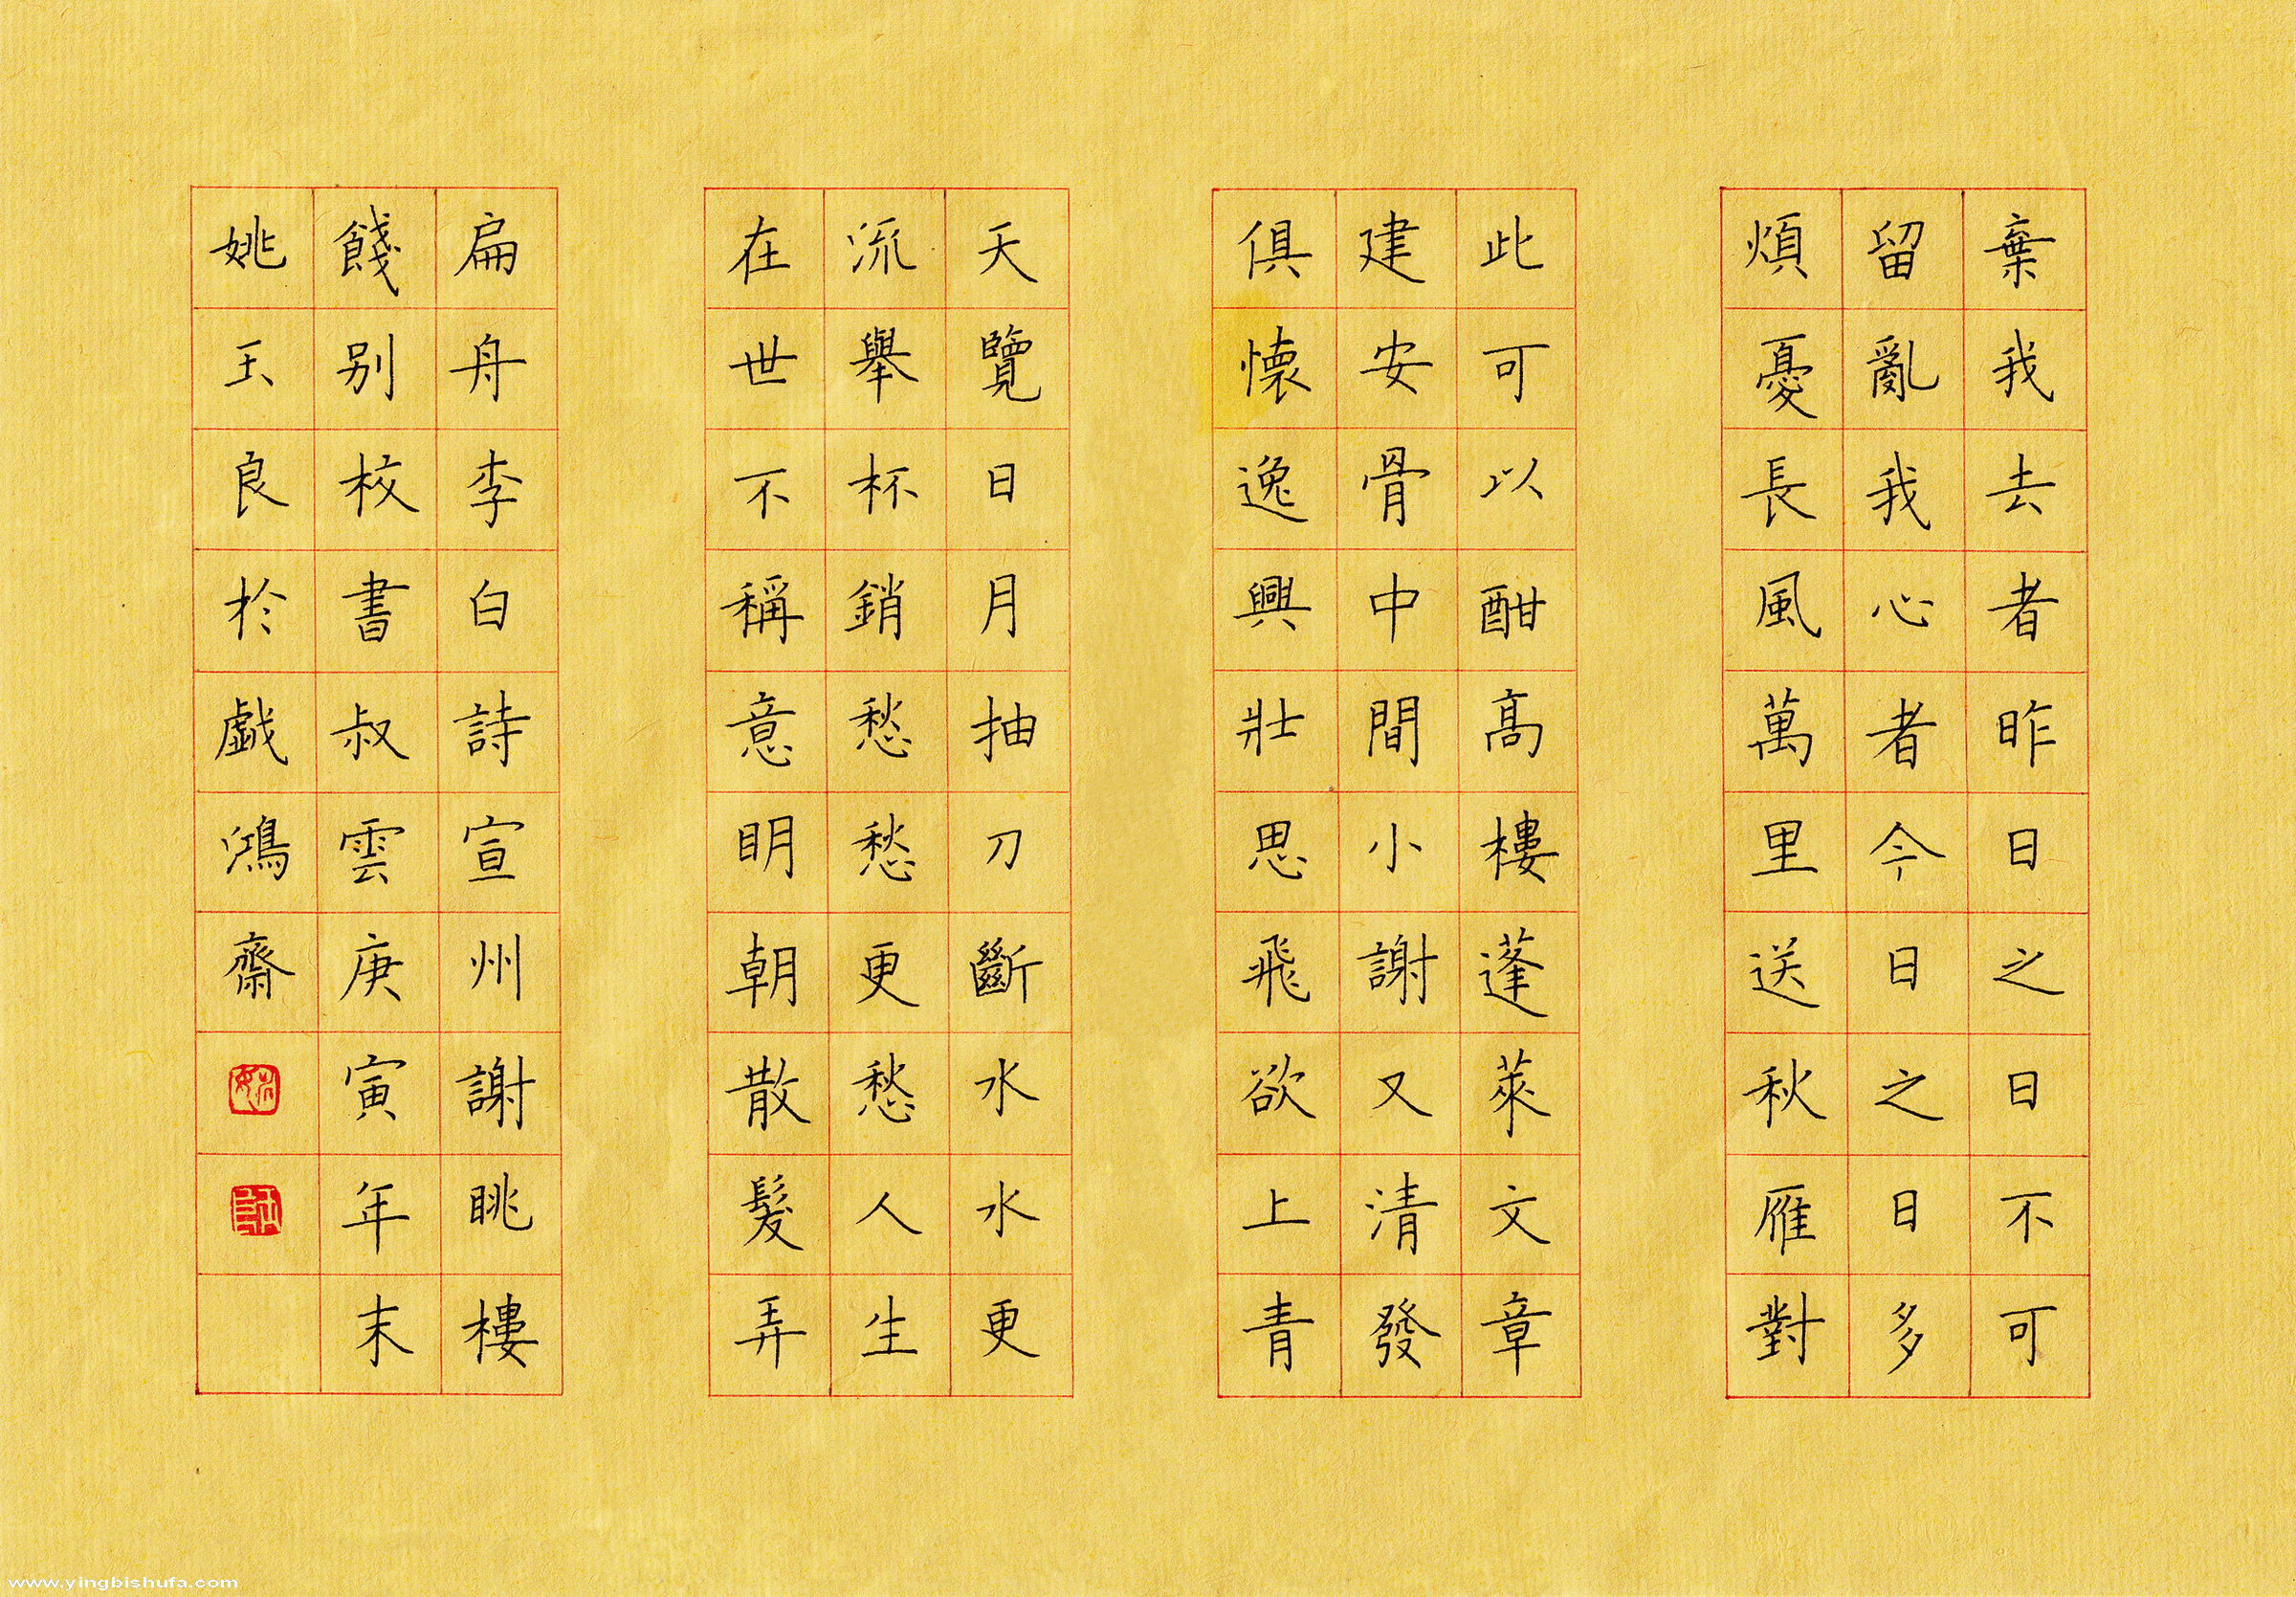 棄我去者昨日之日不可
留亂我心者今日之日多
煩憂長風萬里送秋雁對
此可以酣高樓蓬萊文章
建安骨中間小謝又清發
俱懐逸興壯思飛欲上青
天覽日月抽刀斷水水更
流舉杯銷愁愁更愁人生
在世不稱意眀朝散髮弄
扁舟李白詩宣州謝眺樓
餞别校書叔雲庚寅年末
姚玉良於戯鴻齋
www.yingbishufa.com